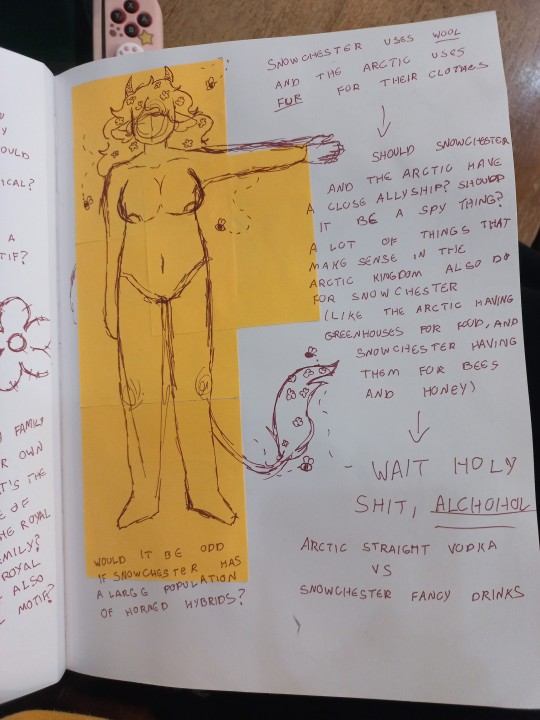 OULD
ICAL?
A
TIF?
FAMILY
R OWN
T'S THE
E OF
HE ROYAL
MILY?
ROYAL
ALSO
MOTIF?
SNOWCHESTER USES WOOL
AND THE ARCTIC USES
FUR FOR THEIR CLOTHES
SHOULD SNOWCHESTER
AND THE ARCTIC HAVE
A CLOSE ALLYSHIP? SHOULD
IT BE A SPY THING?
A LOT OF THINGS THAT
MAKE SENSE IN THE
ARCTIC KINGDOM ALSO DO
FOR SNOWCHESTER
(LIKE THE ARCTIC HAVING
GREENHOUSES FOR FOOD, AND
SNOWCHESTER HAVING
THEM FOR BEES
AND HONEY)
WAIT HOLY
SHIT, ALCHOHOL
ARCTIC STRAIGHT VODKA
VS
SNOWCHESTER FANCY DRINKS
WOULD IT BE ODD
IF SNOWCHESTER HAS
A LARGE POPULATION
OF HORNED HYBRIDS?